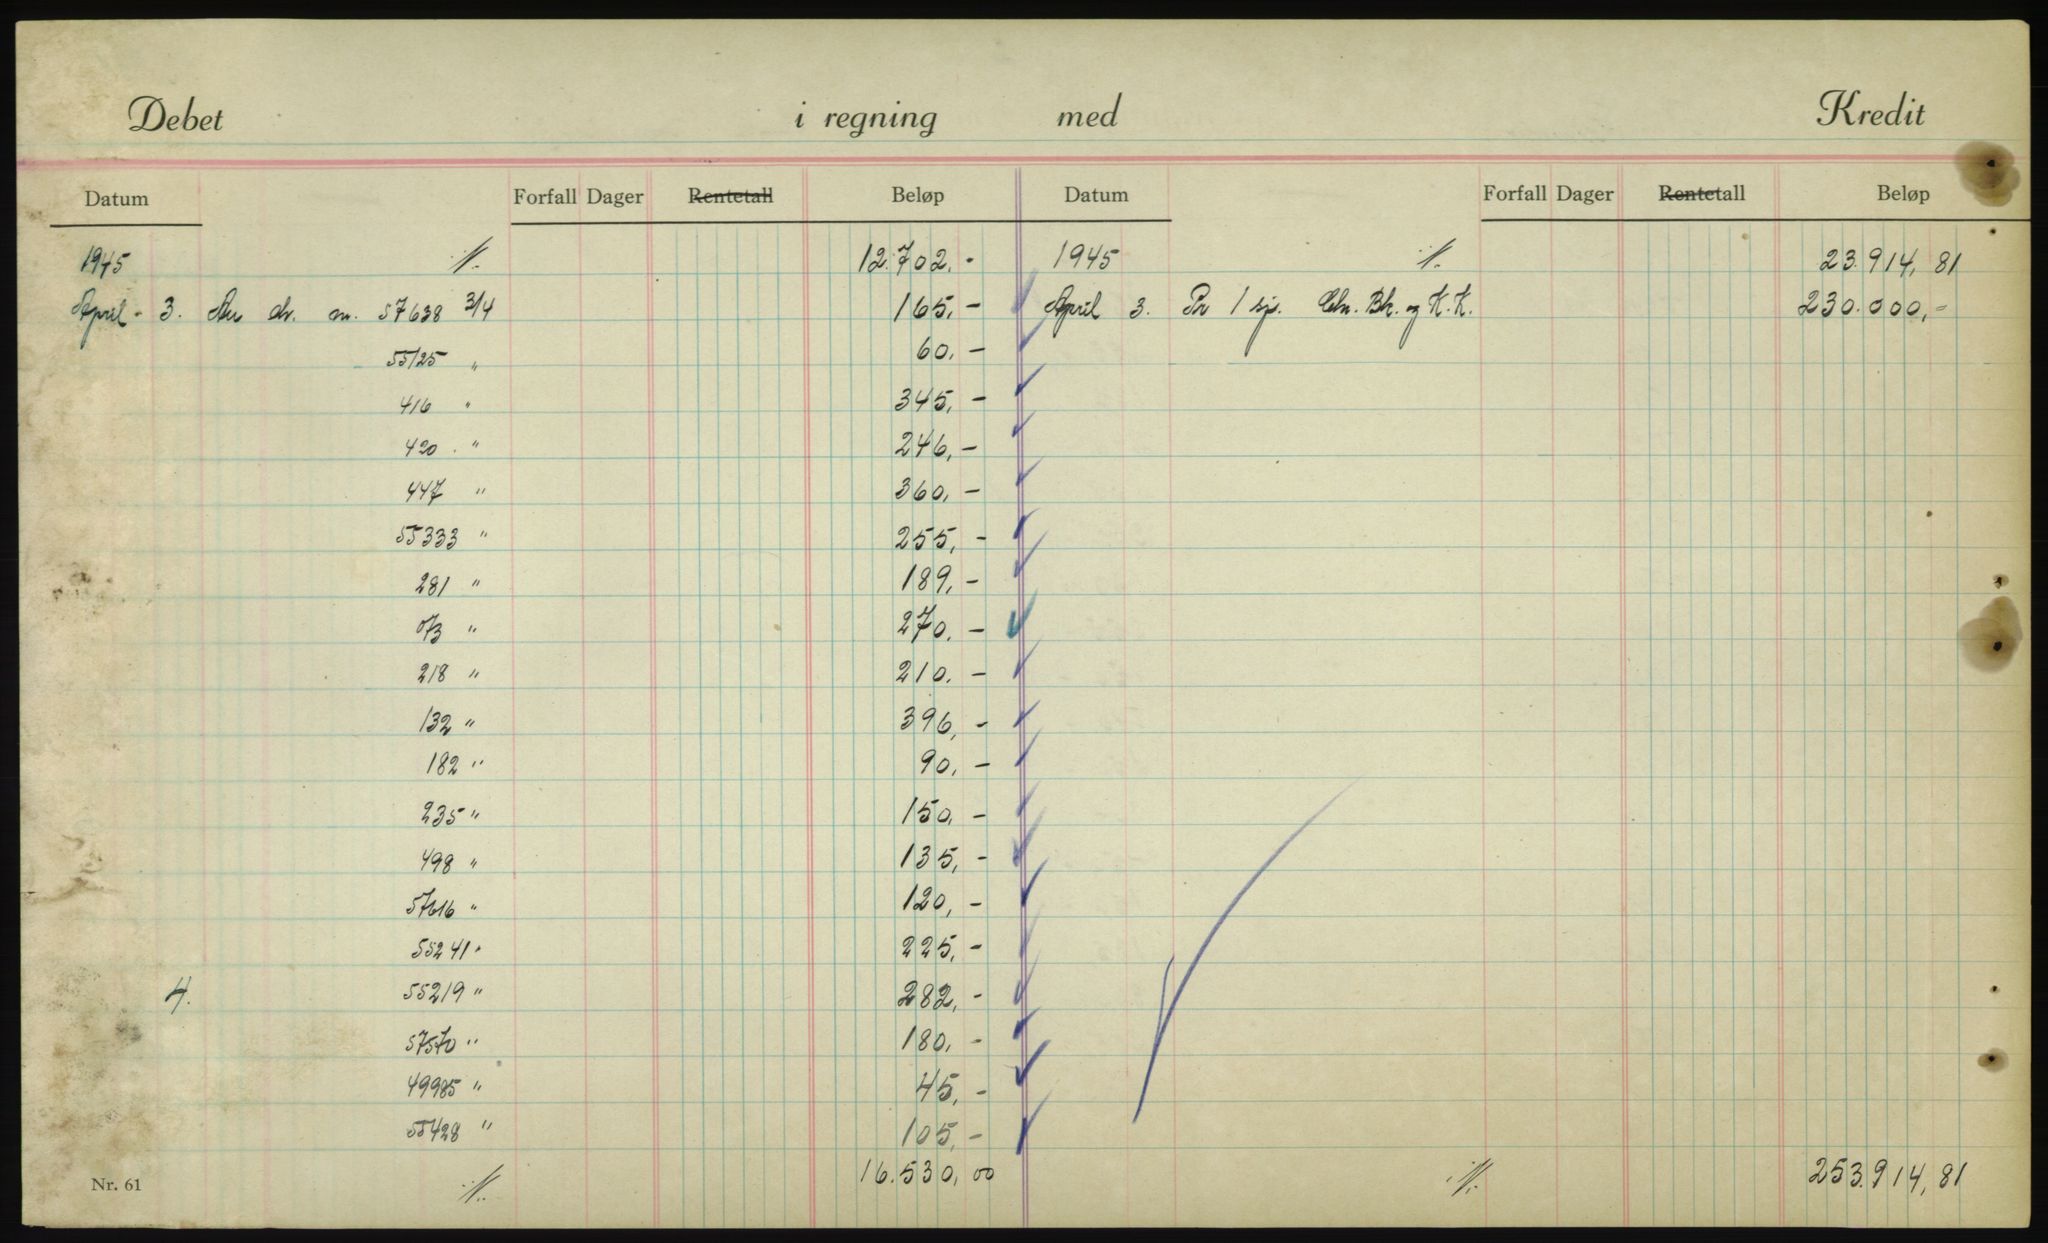 Debet i regning med Kredit
Datum Forfall Dager Rentetall Beløp Datum Forfall Dager Rentetall Beløp
1945 ·/. 12.702.- 1945 ·/. 23.914,81
April - 3. An ch. nr. 57638 3/4 165,- April 3. Pr 1 sp. Chr. Bk. og K.K. 230.000,-
55125 " 60,-
416 " 345,-
420 " 246,-
447 " 360,-
55333 " 255,-
281 " 189,-
073 " 270,-
218 " 210.-
132 " 396,-
182 " 90,-
235 " 150,-
498 " 135,-
57616 " 120,-
55241 " 225,-
4. 55219 " 282,-
57570 " 180,-
49985 " 45,-
55428 " 105,-
Nr. 61 ·/. 16.530,00 ·/. 253.914,81